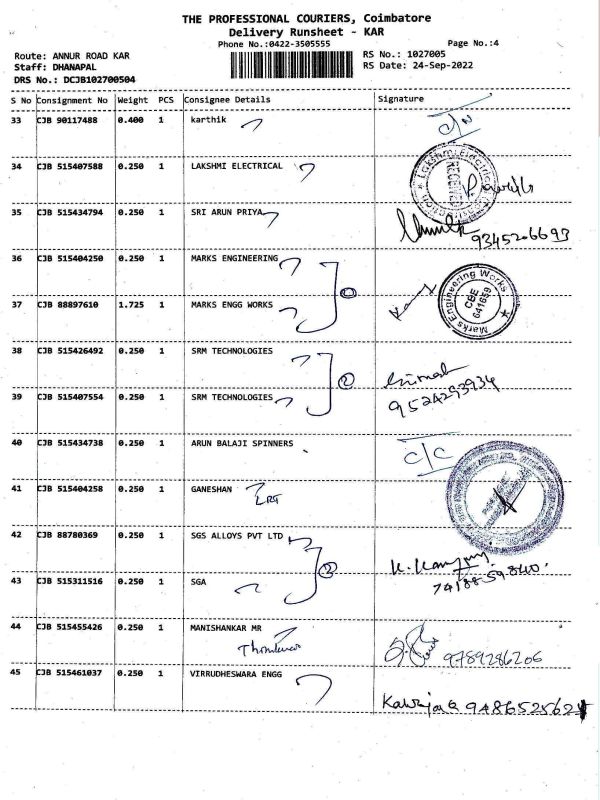 THE PROFESSIONAL COURIERS, Coimbatore
Delivery Runsheet - KAR
Phone No.:0422-3505555 Page No.:4
Route: ANNUR ROAD KAR RS No.: 1027005
Staff: DHANAPAL RS Date: 24-Sep-2022
DRS No.: DCJB102700504
S No Consignment No Weight PCS Consignee Details Signature
33 CJB 90117488 0.400 1 karthik
34 CJB 515407588 0.250 1 LAKSHMI ELECTRICAL
RECEIVED
35 CJB 515434794 0.250 1 SRI ARUN PRIYA
9345206693
36 CJB 515404250 0.250 1 MARKS ENGINEERING
Marks Engineering Works
CBE
641659
37 CJB 88897610 1.725 1 MARKS ENGG WORKS
38 CJB 515426492 0.250 1 SRM TECHNOLOGIES
2
39 CJB 515407554 0.250 1 SRM TECHNOLOGIES
9524293934
40 CJB 515434738 0.250 1 ARUN BALAJI SPINNERS
C/C
41 CJB 515404258 0.250 1 GANESHAN
42 CJB 88780369 0.250 1 SGS ALLOYS PVT LTD
2
43 CJB 515311516 0.250 1 SGA
44 CJB 515455426 0.250 1 MANISHANKAR MR
9789286206
45 CJB 515461037 0.250 1 VIRRUDHESWARA ENGG